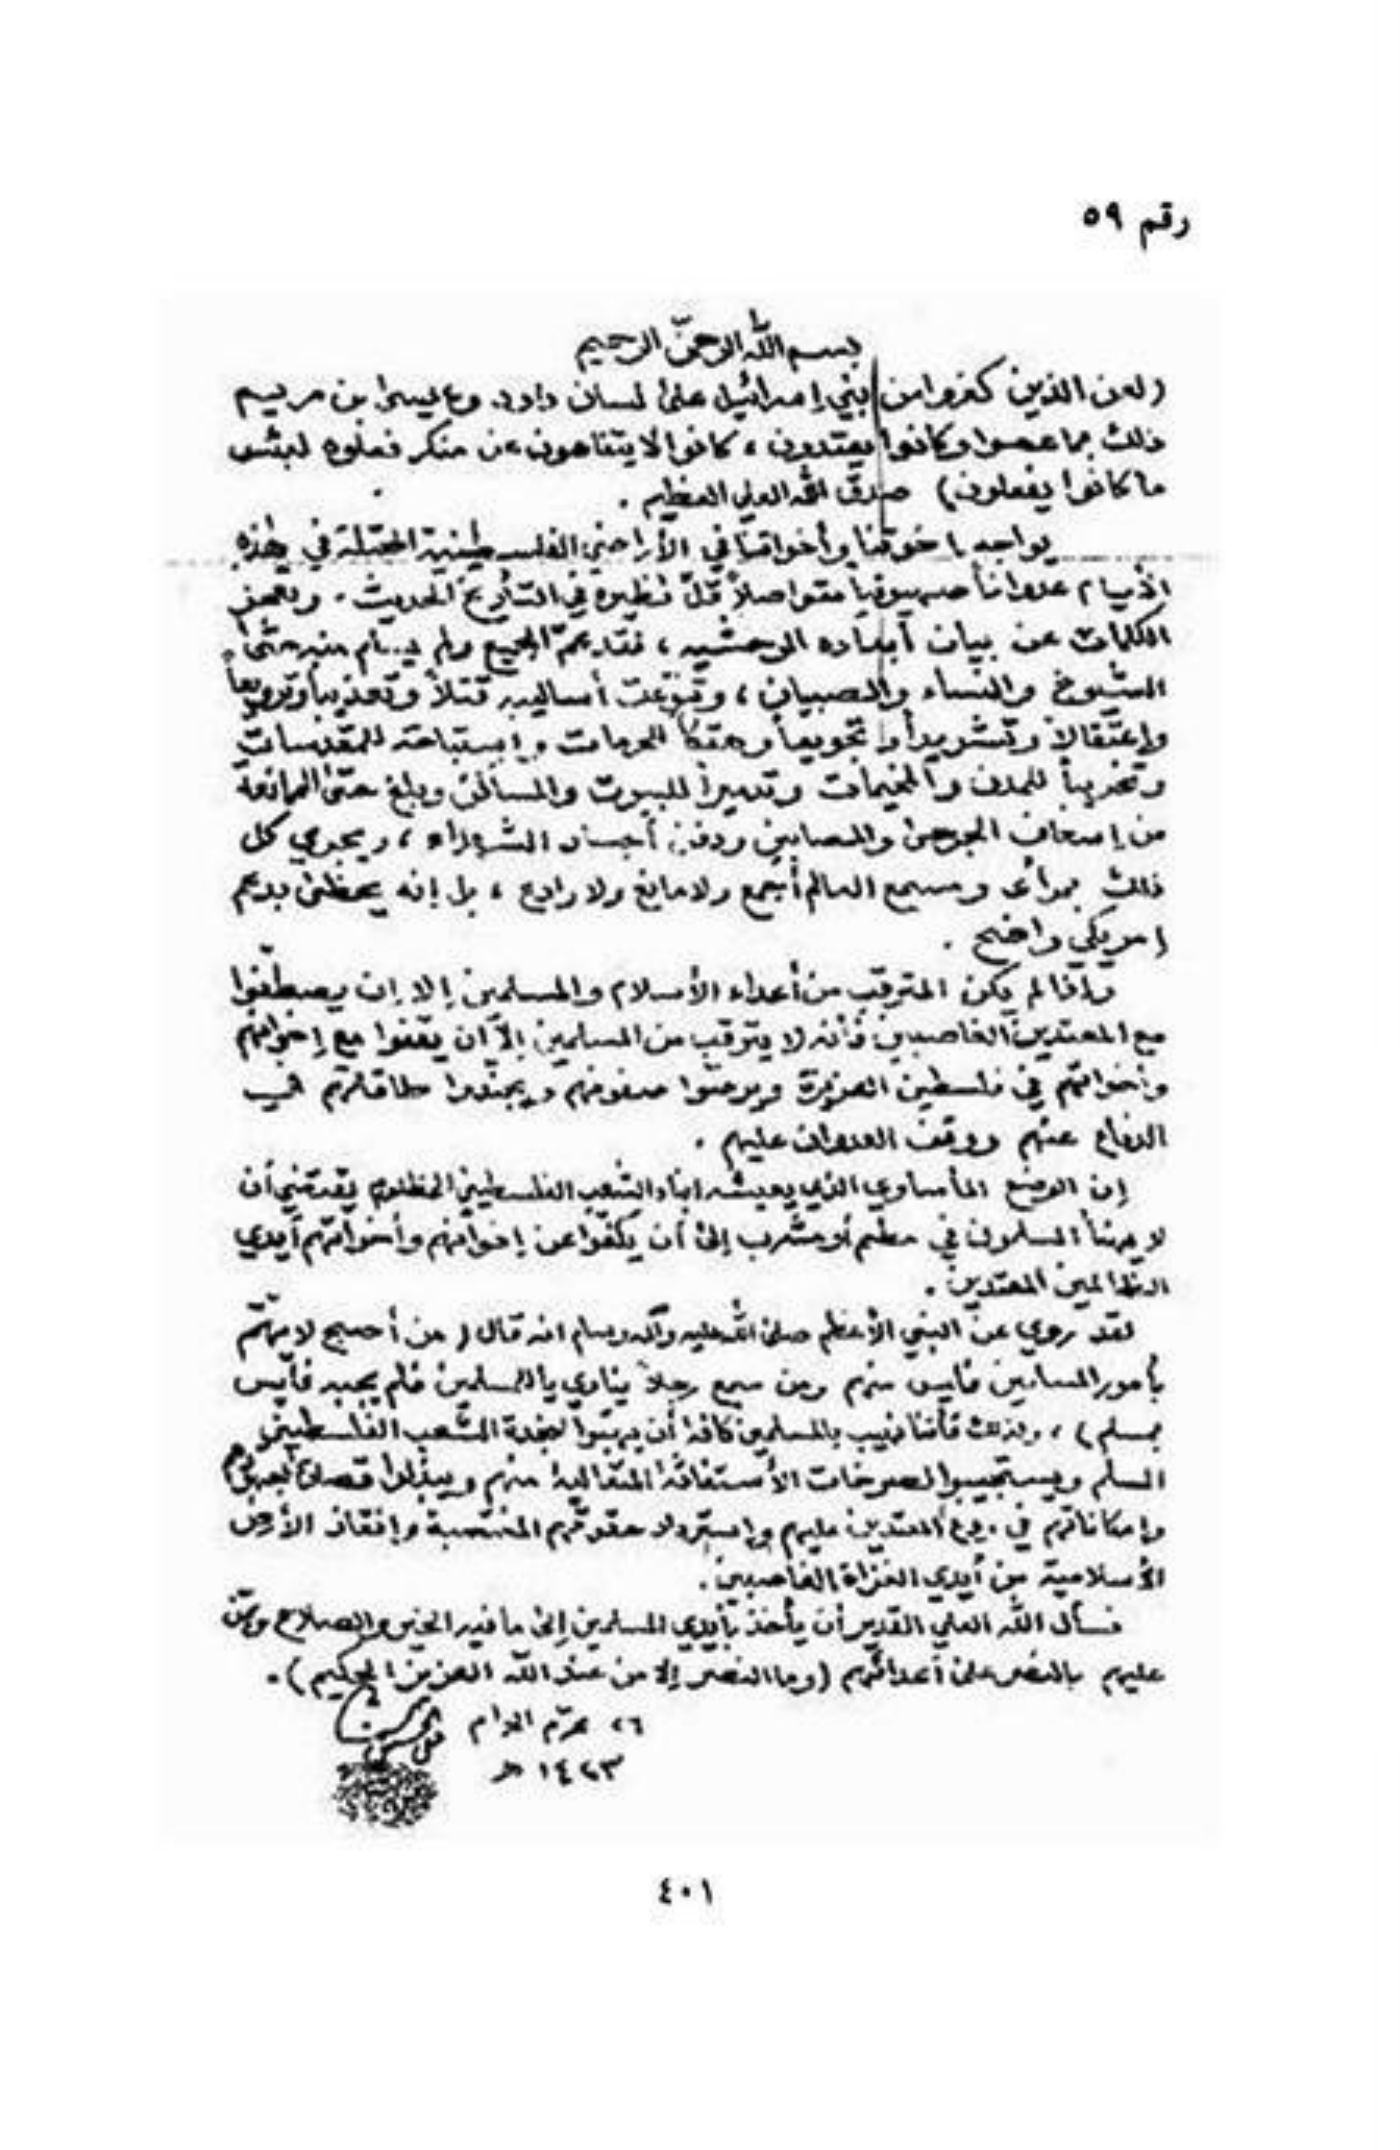 رقم ٥٩
بسم الله الرحمن الرحيم
(لعن الذين كفروا من بني إسرائيل على لسان داود وعيسى بن مريم
ذلك بما عصوا وكانوا يعتدون ، كانوا لا يتناهون عن منكر فعلوه لبئس
ما كانوا يفعلون) صدق الله العلي العظيم .
يواجه إخوتنا وأخواتنا في الأراضي الفلسطينية المحتلة في هذه
الأيام عدواناً صهيونياً متواصلاً قلّ نظيره في التأريخ الحديث . وتعجز
الكلمات عن بيان أبعاده الوحشيه ، فقد عمّ الجميع ولم يسلم منه حتى
الشيوخ والنساء والصبيان ، وتنوعت أساليبه قتلاً وتعذيباً وترويعاً
وإعتقالاً وتشريداً وتجويعاً وهتكاً للحرمات وإستباحة للمقدسات
وتخريباً للمدن والمخيمات وتدميراً للبيوت والمساكن وبلغ حتى الممانعة
من إسعاف الجرحى والمصابين ودفن أجساد الشهداء ، ويجري كل
ذلك بمرأى ومسمع العالم أجمع ولا مانع ولا رادع ، بل إنه يحظى بدعم
امريكي واضح .
وإذا لم يكن المترقب من أعداء الأسلام والمسلمين إلا ان يصطفّوا
مع المعتدين الغاصبين فأنه لا يترقب من المسلمين إلاّ ان يقفوا مع إخوانهم
وأخواتهم في فلسطين العزيزة ويرصّوا صفوفهم ويجنّدوا طاقاتهم في
الدفاع عنهم ووقف العدوان عليهم .
إن الوضع المأساوي الذي يعيشه ابناء الشعب الفلسطيني المظلوم يقتضي أن
لا يهنأ المسلمون في مطعم أو مشرب إلى أن يكفّوا عن إخوانهم وأخواتهم أيدي
الظالمين المعتدين .
لقد روي عن النبي الأعظم صلى الله عليه وآله وسلم انه قال ( من أصبح لا يهتم
بأمور المسلمين فليس منهم ومن سمع رجلاً ينادي يا للمسلمين فلم يجبه فليس
بمسلم ) ، ولذلك فأننا نهيب بالمسلمين كافة أن يهبّوا لنجدة الشعب الفلسطيني
المسلم ويستجيبوا لصرخات الأستغاثة المتعالية منهم ويبذلوا قصارى جهدهم
وإمكاناتهم في ردع المعتدين عليهم وإسترداد حقوقهم المغتصبة وإنقاذ الأرض
الأسلامية من أيدي الغزاة الغاصبين .
نسأل الله العلي القدير أن يأخذ بأيدي المسلمين إلى ما فيه الخير والصلاح ويمنّ
عليهم بالنصر على أعدائهم (وما النصر إلا من عند الله العزيز الحكيم) .
٢٦ محرّم الحرام
١٤٢٣ هـ
٤٠١